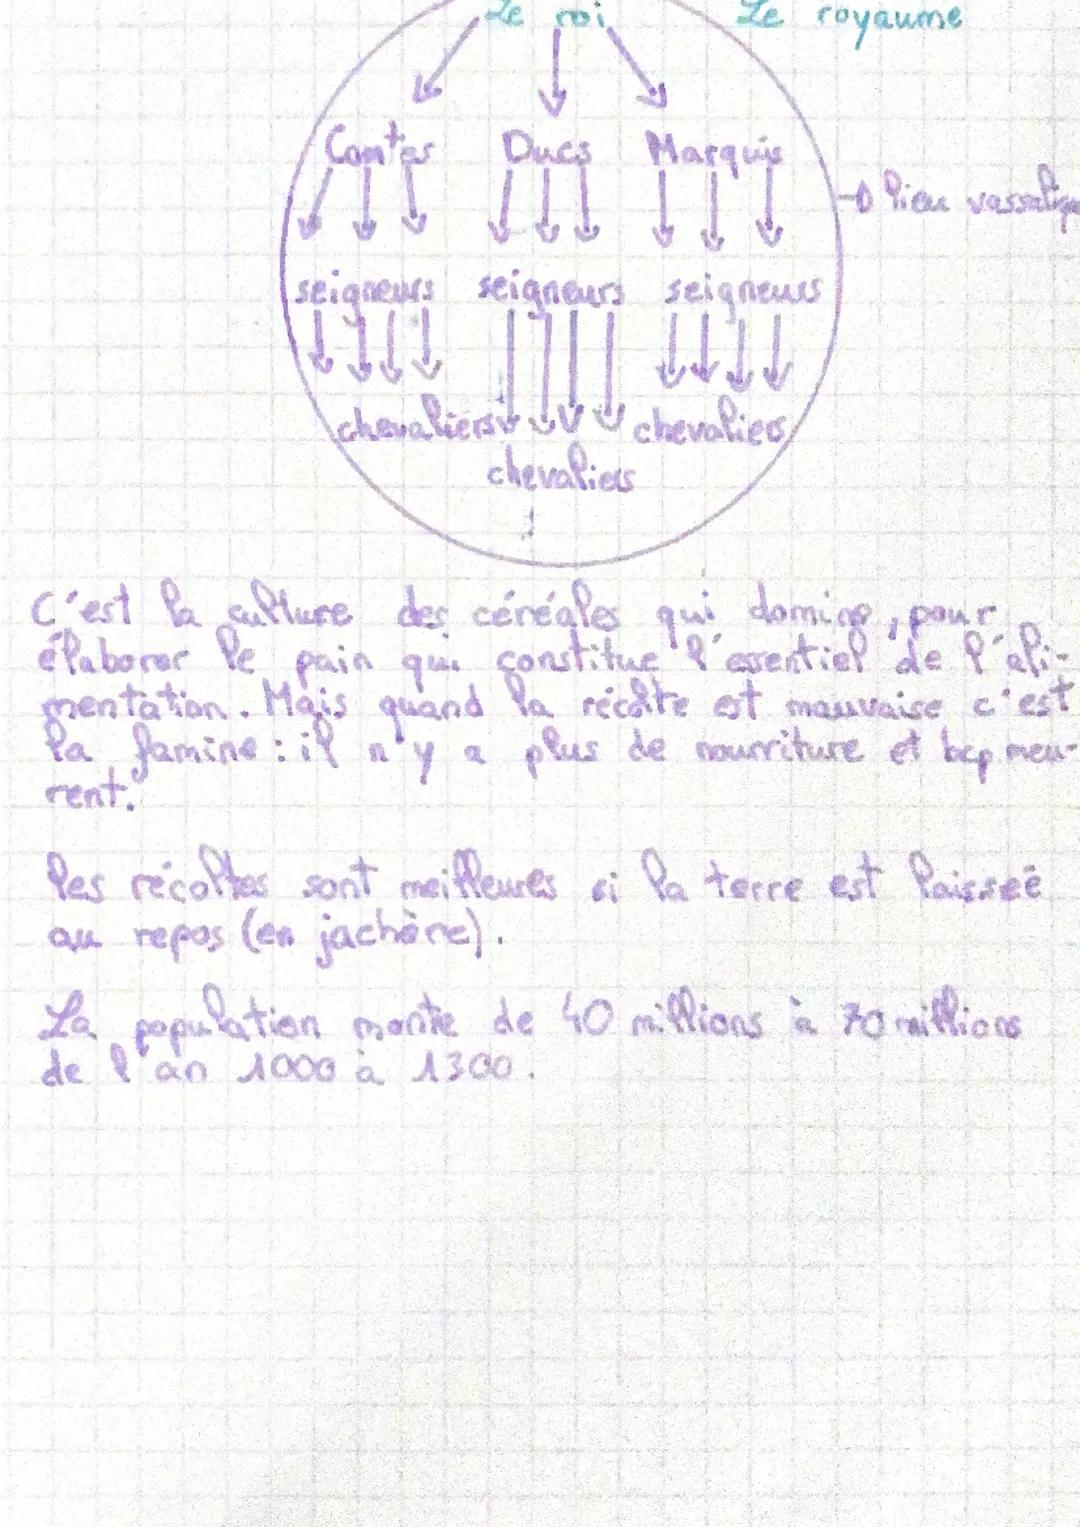 Le roi Le royaume
Comtes Ducs Marquis
lien vassalique
seigneurs seigneurs seigneurs
chevaliers chevaliers
chevaliers
C'est la culture des céréales qui domine, pour
élaborer le pain qui constitue l'essentiel de l'ali-
mentation. Mais quand la récolte est mauvaise c'est
la famine : il n'y a plus de nourriture et bcp meu-
rent.
les récoltes sont meilleures si la terre est laissée
au repos (en jachère).
La population monte de 40 millions à 70 millions
de l'an 1000 à 1300.